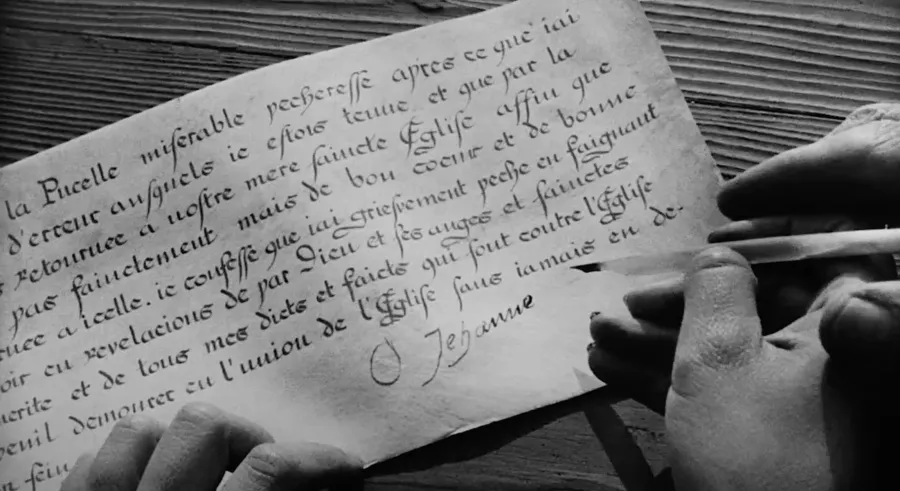 la Pucelle miſerable pechereſſe apres ce que iai
d'erreur auſquels ie eſtois tenue et que par la
retournee a noſtre mere ſaincte Egliſe affin que
pas fainctement mais de bon coeur et de bonne
a icelle. ie confeſſe que iai griefvement peche en faignant
oir eu revelacions de par Dieu et ſes anges et ſainctes
et de tous mes dicts et faicts qui ſont contre l'Egliſe
demourer en l'union de l'Egliſe ſans iamais en de-
O Jehanne